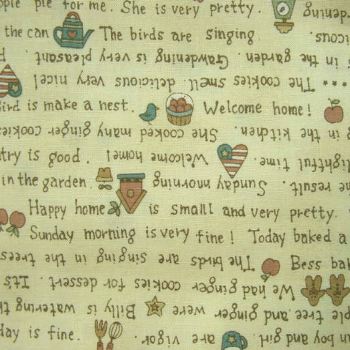 pie for me. She is very pretty.
the can The birds are singing
in the garden. Gawdening is very pleasant
The cookies smell, delicious very nice!
Bird is make a nest. Welcome home!
in the kitchen. She cooked many ginger cookies
try is good. Welcome home! time.
in the garden. Sunday morning result.
Happy home is small and very pretty.
Sunday morning is very fine! Today baked a
The birds are singing in the trees
Bess bak
We had ginger cookies for dessert. It's
tree and ginger were Billy is watering th
day is fine. vigor are boy and girl.